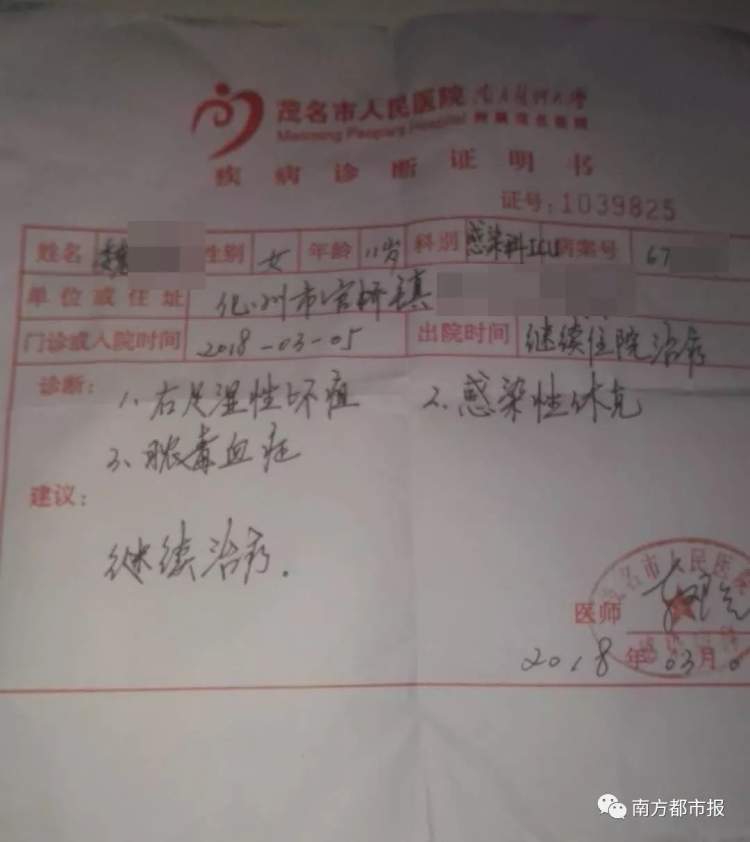 茂名市人民医院 南方医科大学
Maoming People's Hospital 附属茂名医院
疾病诊断证明书
证号:1039825
姓名 性别 女 年龄 11岁 科别 感染科ICU 病案号 67
单位或住址 化州市官桥镇
门诊或入院时间 2018-03-05 出院时间 继续住院治疗
诊断: 1、右足湿性坏疽 2、感染性休克
3、脓毒血症
建议:
继续治疗.
茂名市人民医
医师
2018年03月
南方都市报